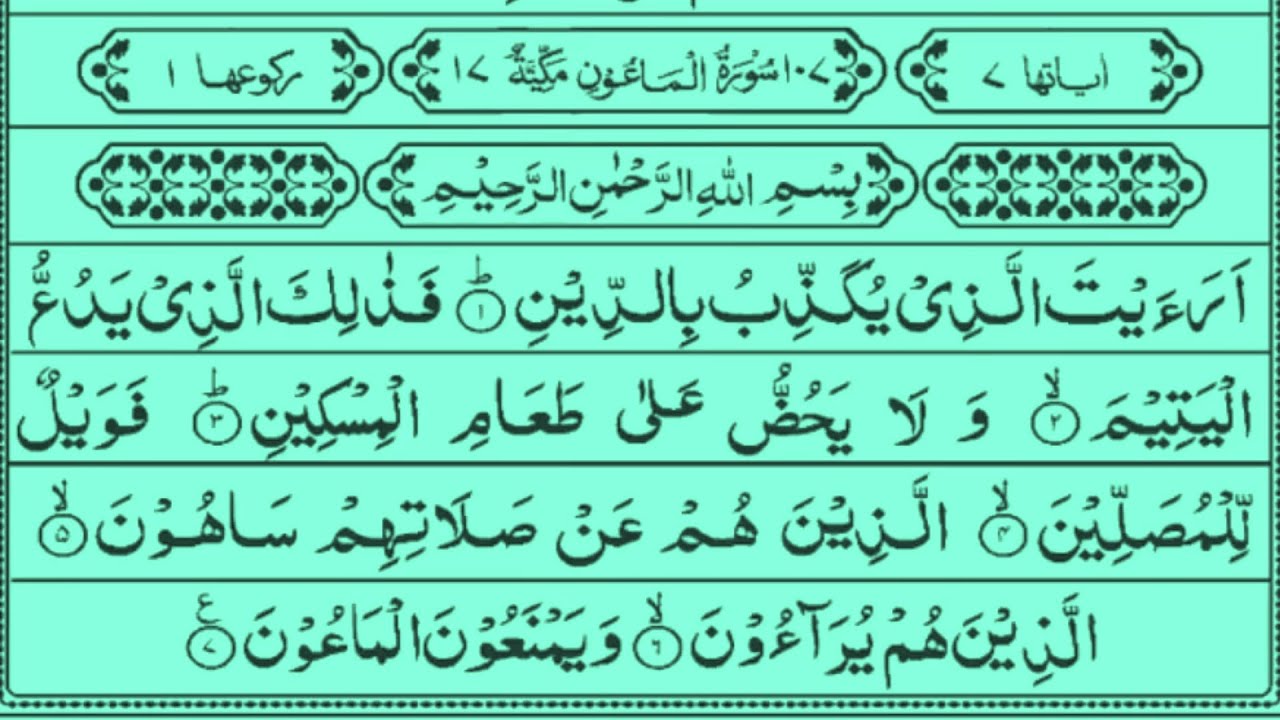 اٰياتها ٧ ١٠٧ سُوْرَةُ الْمَاعُوْنِ مَكِّيَّةٌ ١٧ ركوعها ١
بِسْمِ اللّٰهِ الرَّحْمٰنِ الرَّحِيْمِ
اَرَءَيْتَ الَّذِىْ يُكَذِّبُ بِالدِّيْنِ ؕ﴿۱﴾ فَذٰلِكَ الَّذِىْ يَدُعُّ
الْيَتِيْمَ ۙ﴿۲﴾ وَ لَا يَحُضُّ عَلٰى طَعَامِ الْمِسْكِيْنِ ؕ﴿۳﴾ فَوَيْلٌ
لِّلْمُصَلِّيْنَ ۙ﴿۴﴾ الَّذِيْنَ هُمْ عَنْ صَلَاتِهِمْ سَاهُوْنَ ۙ﴿۵﴾
الَّذِيْنَ هُمْ يُرَآءُوْنَ ۙ﴿۶﴾ وَيَمْنَعُوْنَ الْمَاعُوْنَ ﴿۷﴾ع